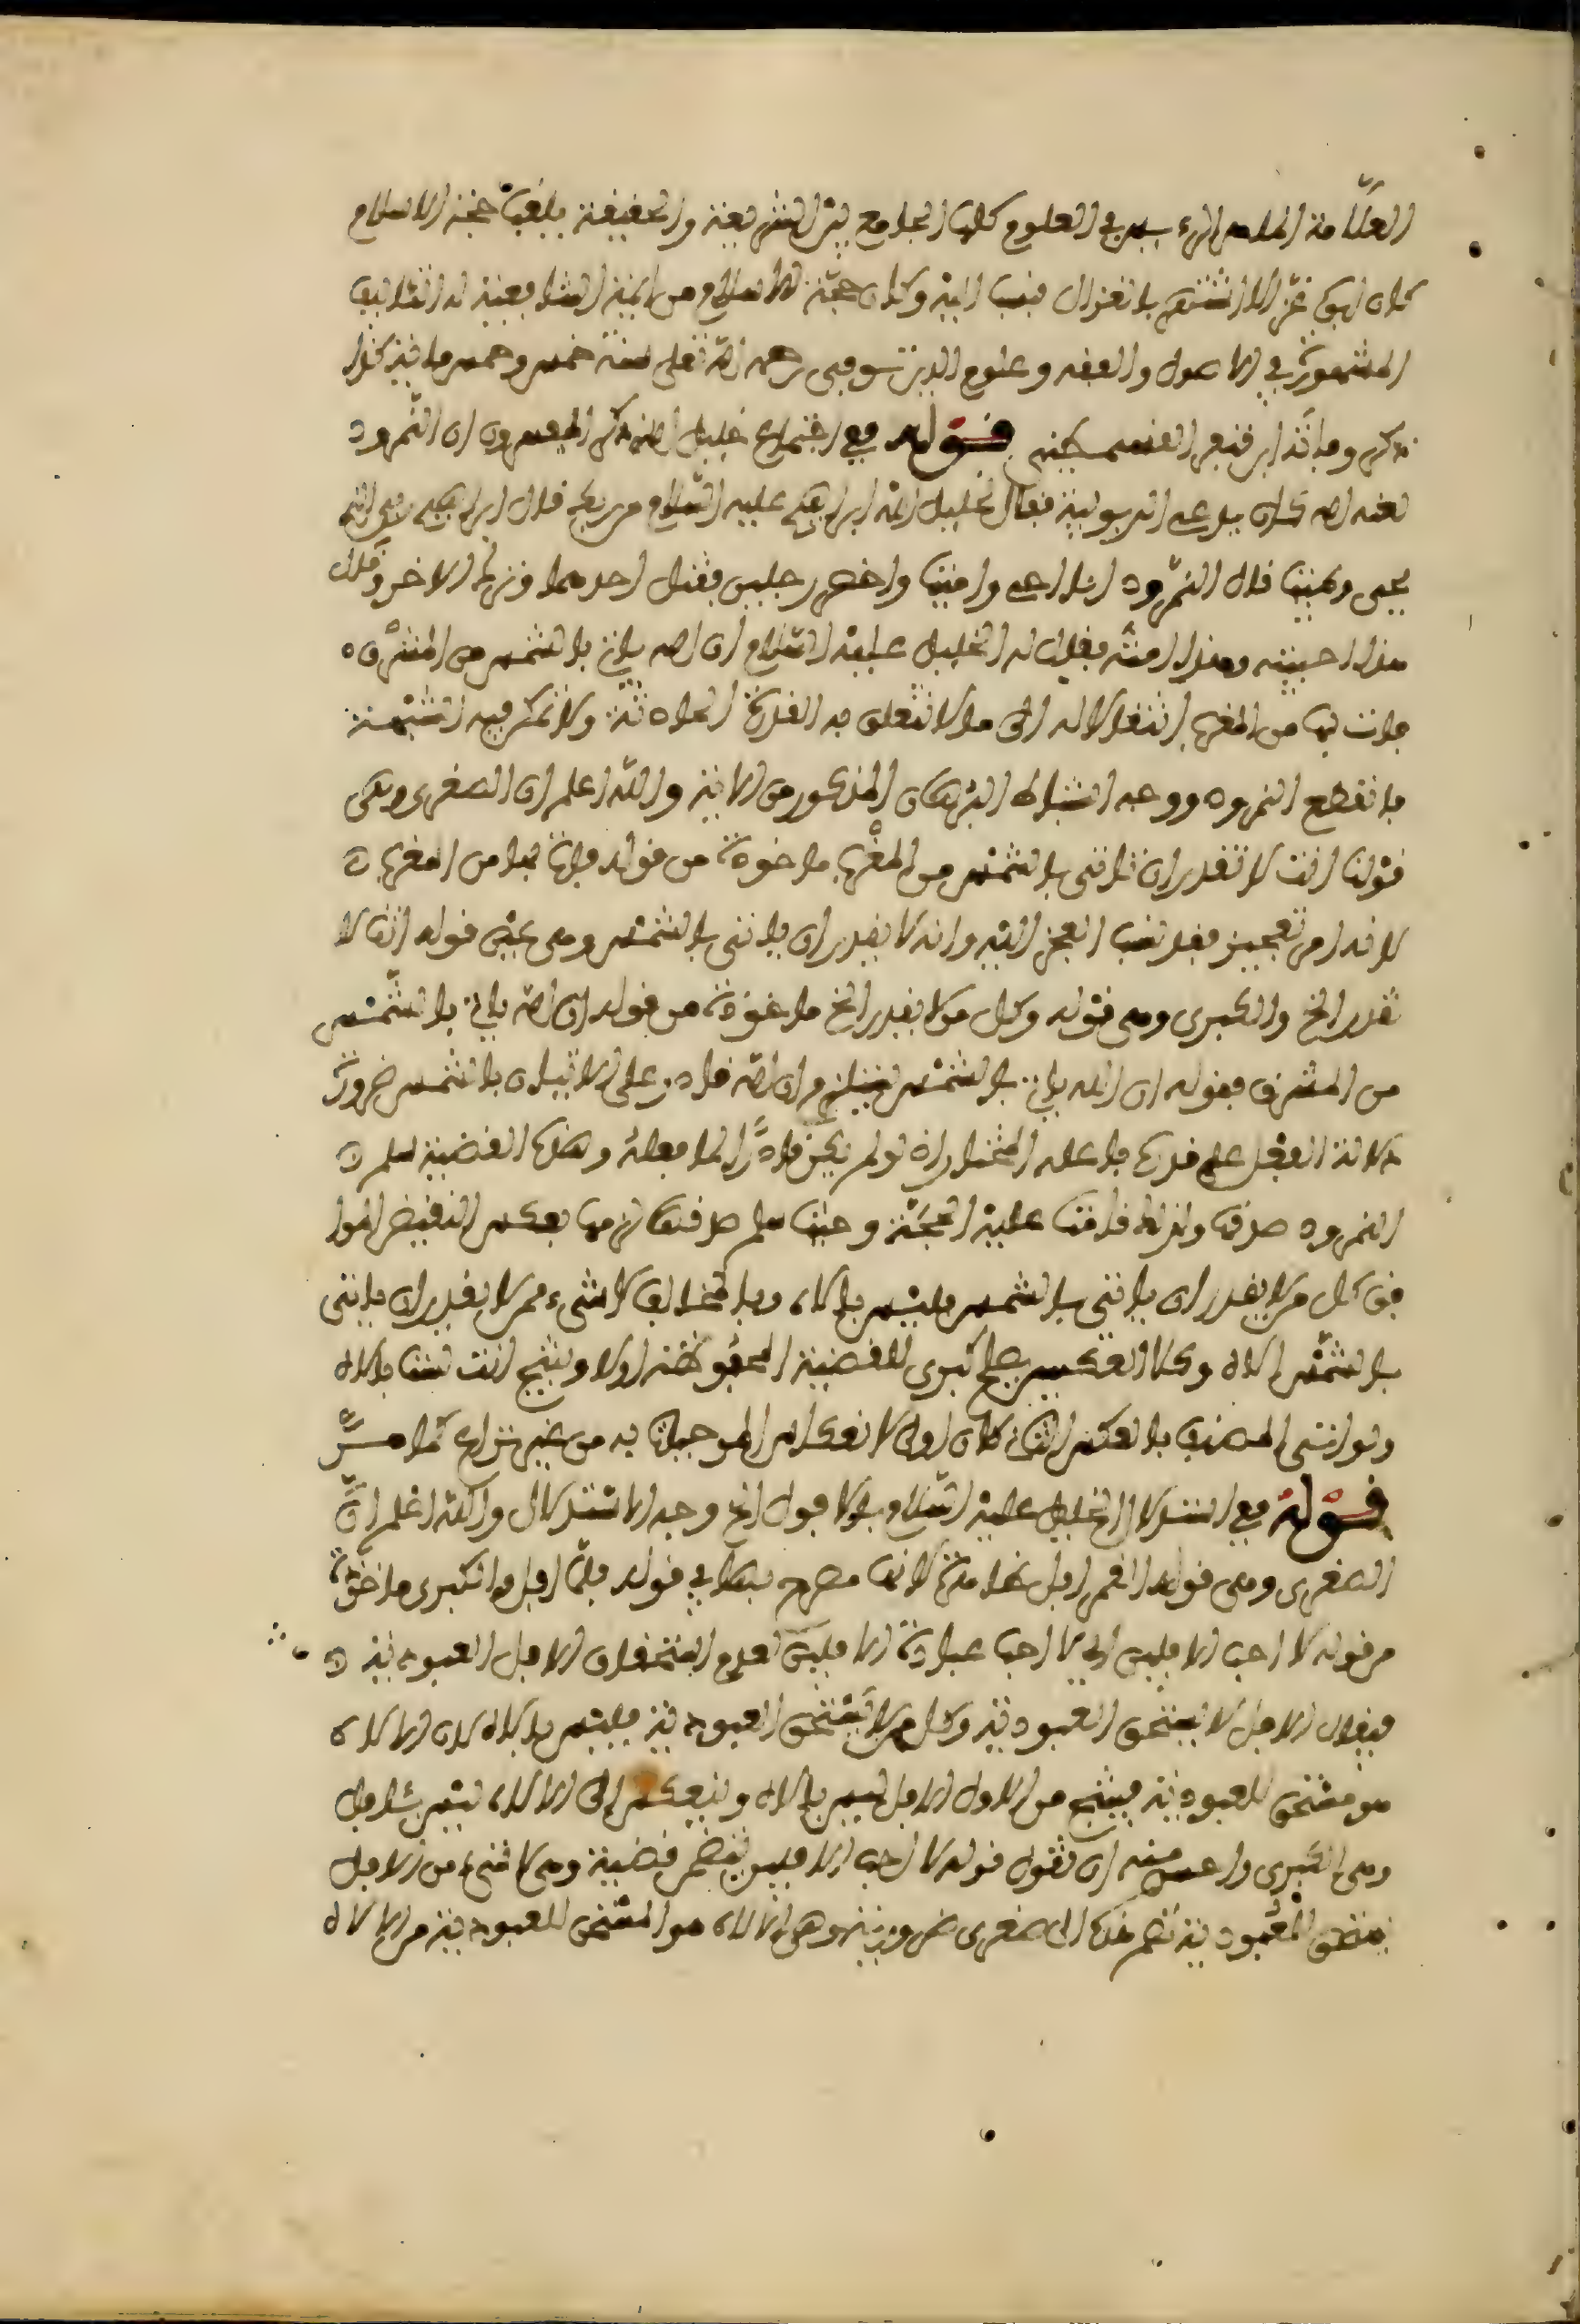 العلامة الماهر في العلوم كلها الجامع بين الشريعة والحقيقة يلقب حجة الاسلام
كان ابوه غزالا اشتهر بالغزالي نسب اليه وكان حجة الاسلام من ايمة الشافعية له التئاليف
المشهورة في الاصول والفقه وعلوم الدين توفي رحمه الله تعلى سنة خمس وخمسمائة كذا
ذكره قوله ففي احتجاج خليل الله ذكر المفسرون ان النمرود
لعنه الله كان يدعي الربوبية فقال الخليل ابراهيم عليه السلام من ربك قال ابراهيم ربي الذي
يحيي ويميت قال النمرود انا احيي واميت واحضر رجلين فقتل احدهما وترك الاخر وقال
هذا احييته وهذا امته فقال له الخليل عليه السلام ان الله ياتي بالشمس من المشرق
فات بها من المغرب انتقالا له الى ما لا تتعلق به القدرة الحادثة ولا تمكن فيه الشبهة
فانقطع النمرود ووجه استنباط البرهان المذكور من الاية والله اعلم ان الصغرى وهي
قولنا انت لا تقدر ان تاتي بالشمس من المغرب ماخوذة من قوله فات بها من المغرب
لانه امر تعجيز فقد نسب العجز اليه وانه لا يقدر ان ياتي بالشمس وهي عين قوله انت لا
تقدر الخ والكبرى وهي قوله وكل من لا يقدر الخ ماخوذة من قوله ان الله ياتي بالشمس
من المشرق فقوله ان الله ياتي بالشمس ان الله قادر على الاتيان بالشمس ضرورة
دلالة الفعل على قدرة فاعله المختار اذ لو لم يكن قادرا لما فعله وهذه القضية سلم
النمرود صدقها ولذلك قامت عليه الحجة وحيث سلم صدقها لزمها بعكس النقيض الموا
فق كل من لا يقدر ان ياتي بالشمس فليس بالاه وبالمخالف لا شيء ممن لا يقدر ان ياتي
بالشمس الاه وكلا العكسين يصلح كبرى للقضية المحفوظة اولا وينتج انت لست بالاه
ولو اتى المصنف بالعكس الثاني كان اولى لانعكاس الموجبات به من غير نزاع كما مر
قوله ففي استدلال الخليل عليه السلام بالافول الخ وجه الاستدلال والله اعلم ان
الصغرى وهي قوله القمر افل لانها مصرح بها في قوله فلما افل والكبرى ماخوذة
من قوله لا احب الافلين اي لا احب عبادة الافلين لعدم استحقاق الافل العبودية
فيقال الافل لا يستحق العبودية وكل من لا يستحق العبودية فليس بالاه لان الالاه
هو مستحق للعبودية فينتج من الاول الافل ليس بالاه وينعكس الى الالاه ليس بئافل
وهي الكبرى واحسن منه ان تقول قوله لا احب الافلين يتضمن قضية وهي لا شيء من الافل
يستحق العبودية تضم هذه الى صغرى ضرورية وهي الالاه هو المستحق للعبودية من الالاه